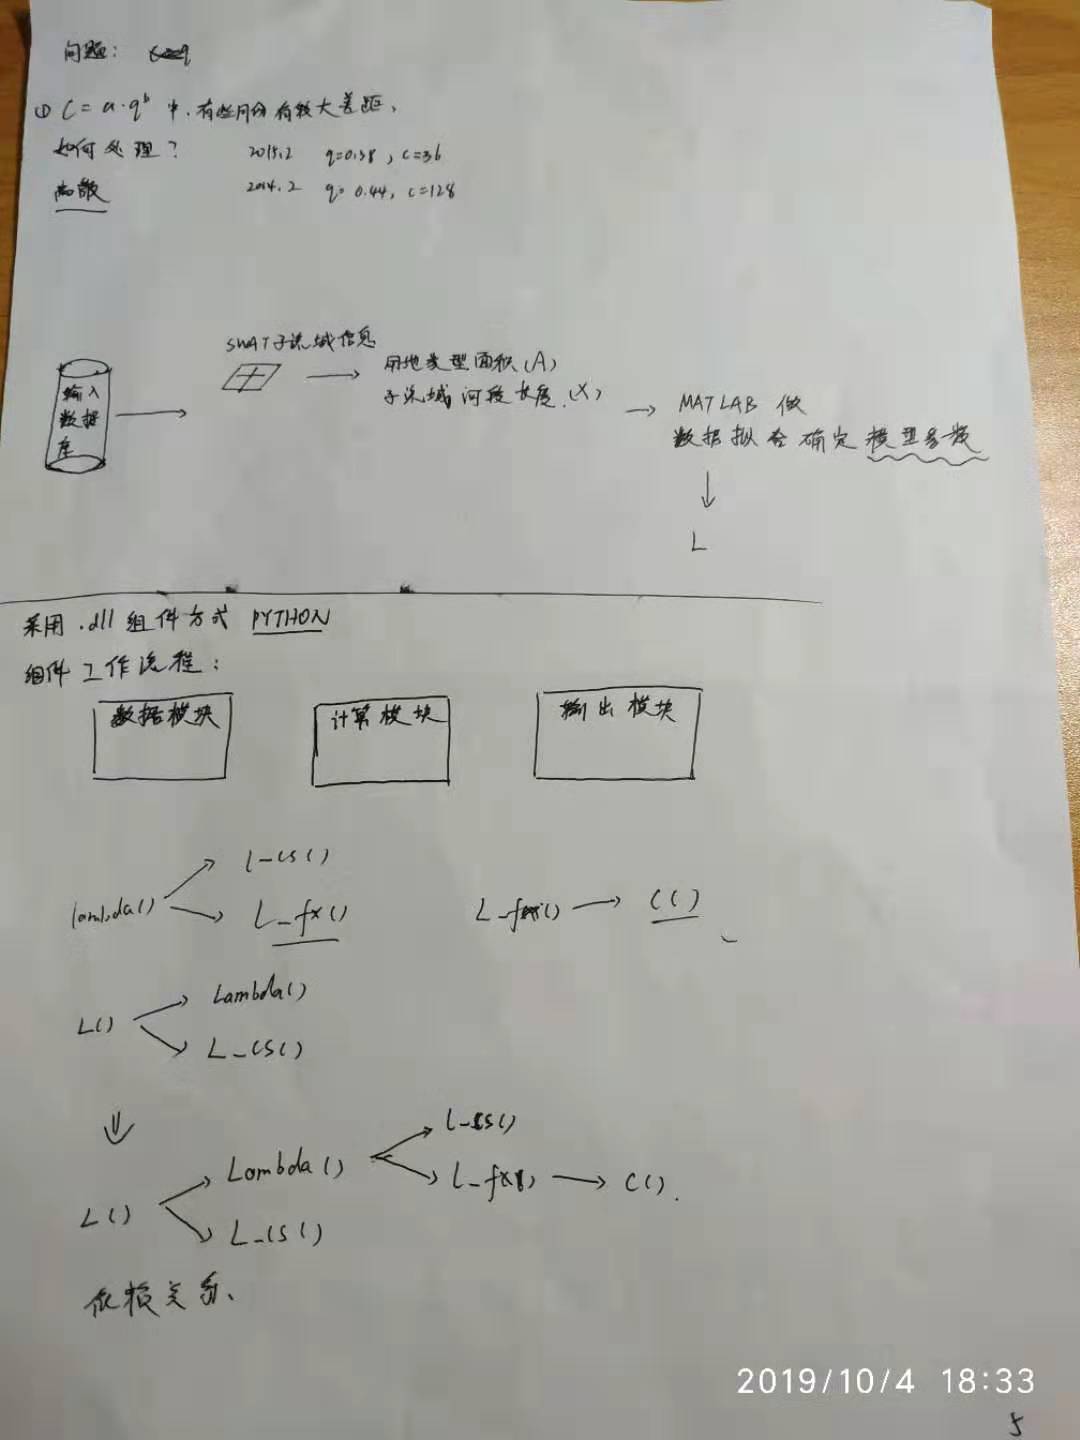 问题：
① C = a·q^b 中，有些月份有较大差距，
如何处理？ 2015.2 q=0.38, c=36
离散 2014.2 q= 0.44, c=128
SWAT子流域信息
输入
数据
库
用地类型面积(A)
子流域河段长度(X)
MATLAB 做
数据拟合确定模型参数
L
采用.dll组件方式 PYTHON
组件工作流程：
数据模块 计算模块 输出模块
L_cs()
lambda()
L_fx() L_fx() → C()
Lambda()
L()
L_cs()
L_cs()
Lambda()
L_fx() → C().
L()
L_cs()
依赖关系、
2019/10/4 18:33
5